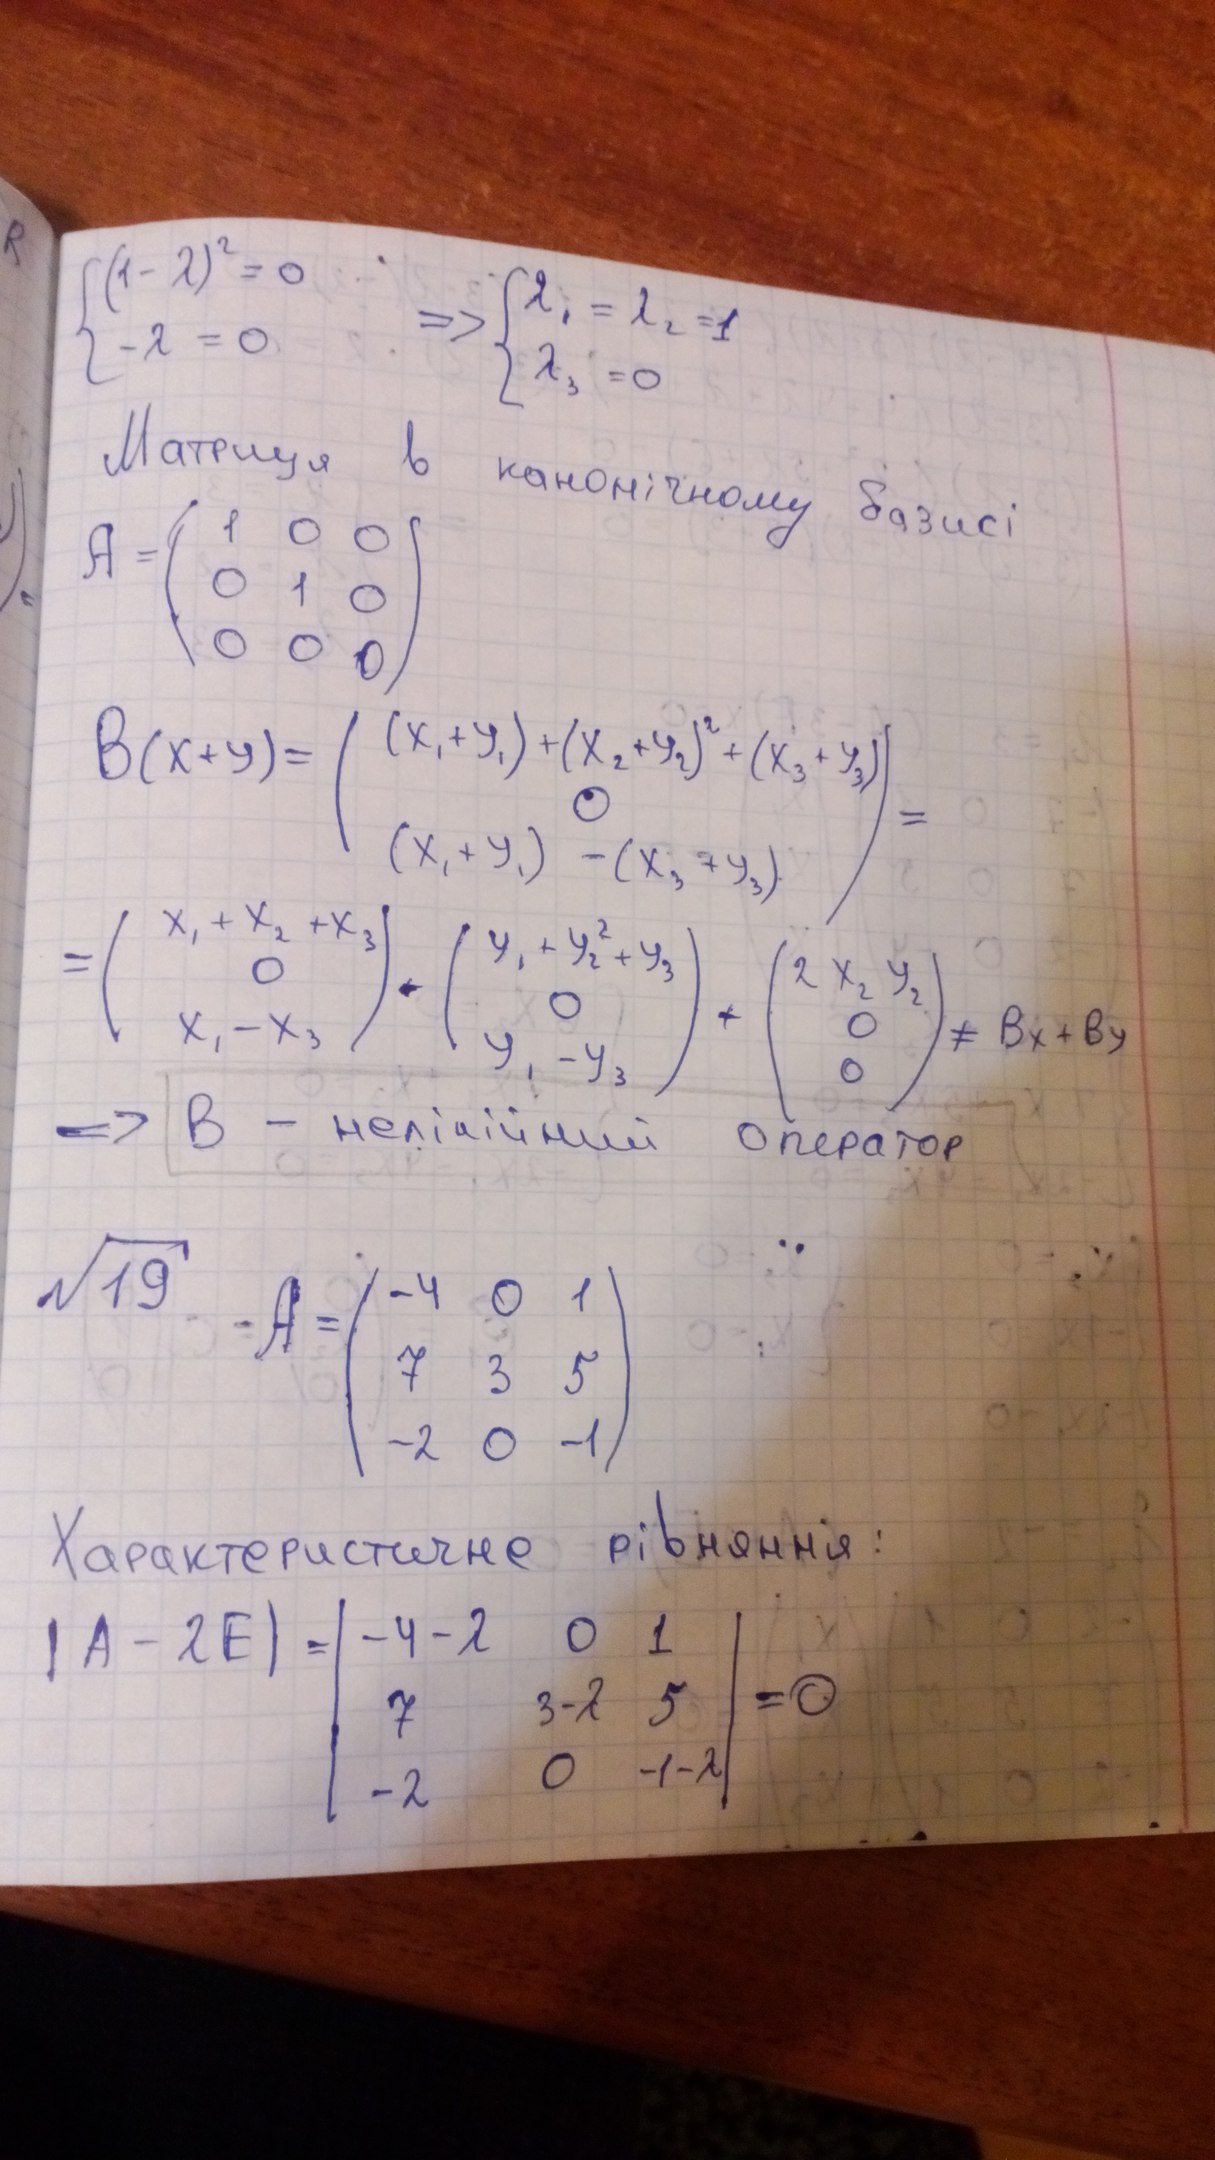 { (1-λ)² = 0
-λ = 0
=> { λ₁ = λ₂ = 1
λ₃ = 0
Матриця в канонічному базисі
A = ( 1 0 0
0 1 0
0 0 0 )
B(x+y) = ( (x₁+y₁)+(x₂+y₂)²+(x₃+y₃)
0
(x₁+y₁) -(x₃+y₃) ) =
= ( x₁ + x₂ + x₃
0
x₁ - x₃ ) + ( y₁ + y₂² + y₃
0
y₁ - y₃ ) + ( 2 x₂ y₂
0
0 ) ≠ Bx + By
=> B - нелінійний оператор
√19 - A = ( -4 0 1
7 3 5
-2 0 -1 )
Характеристичне рівняння:
|A - λE| = | -4-λ 0 1
7 3-λ 5
-2 0 -1-λ | = 0